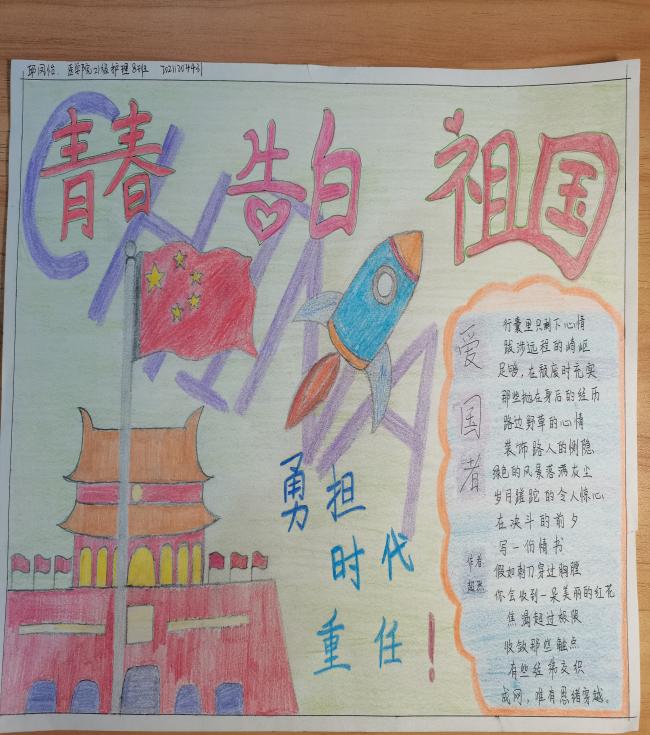 医学院21级护理8班
青春 告白 祖国
CHINA
勇担
时代
重任！
爱国者
作者
行囊里只剩下心情
跋涉远程的崎岖
足够，在颓废时充实
那些抛在身后的经历
路边野草的心情
装饰路人的恻隐
绿色的风景落满灰尘
岁月蹉跎的令人惊心
在决斗的前夕
写一份情书
假如刺刀穿过胸膛
你会收到一朵美丽的红花
焦渴超过极限
收敛那些触点
有些经纬交织
成网，唯有思绪穿越。